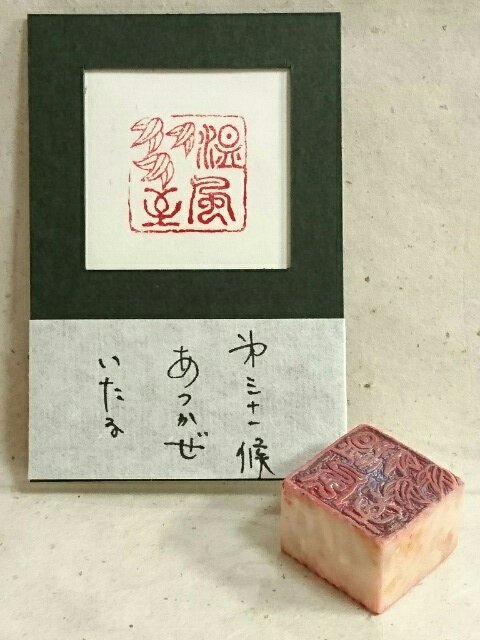 温風
至
第三十一候
あつかぜ
いたる